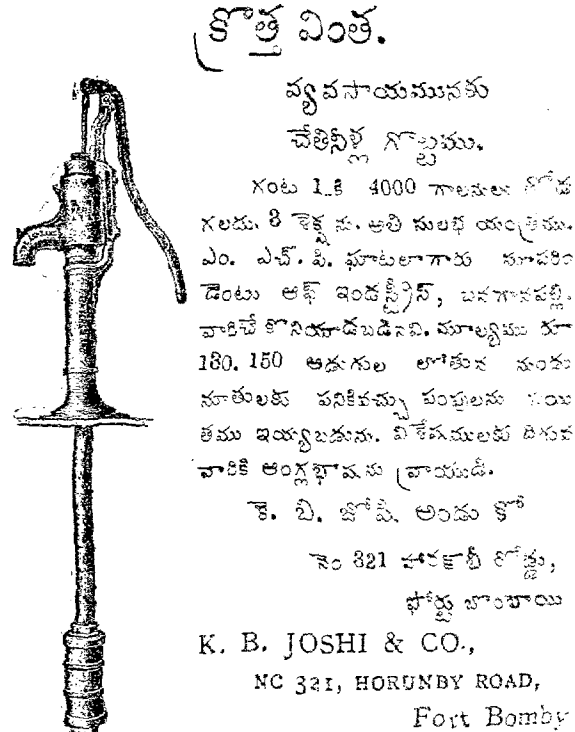 క్రొత్త వింత.
వ్యవసాయమునకు
చేతినీళ్ల గొట్టము.
గంట 1_కి 4000 గాలనులు తోడ
గలదు. 8 సెక్షను. అతి సులభ యంత్రము.
ఎం. ఎచ్. పి. ఘాటలాగారు సూపరిం
డెంటు ఆఫ్ ఇండస్ట్రీస్, బనగానపల్లి.
వారిచే కొనియాడబడినవి. మూల్యము రూ
180. 150 అడుగుల లోతున నుండు
నూతులకు పనికివచ్చు పంపులను సయి
తము ఇయ్యబడును. విశేషములకు దిగువ
వారికి ఆంగ్లభాషను వ్రాయుడీ.
కె. బి. జోషీ. అండు కో
నెం 321 హారన్బీ రోడ్డు,
ఫోర్టు బొంబాయి
K. B. JOSHI & CO.,
NC 321, HORUNBY ROAD,
Fort Bomby